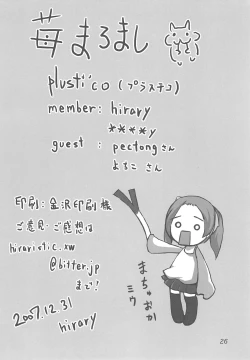 苺まろまし
plusti'co (プラスチコ)
member: hirary
****y
guest : pectongさん
よろこさん
印刷：金沢印刷様
ご意見・ご感想は
hiraristic.xw
@bitter.jp
まで！
2007.12.31
hirary
まちゅおか
ミウ
26